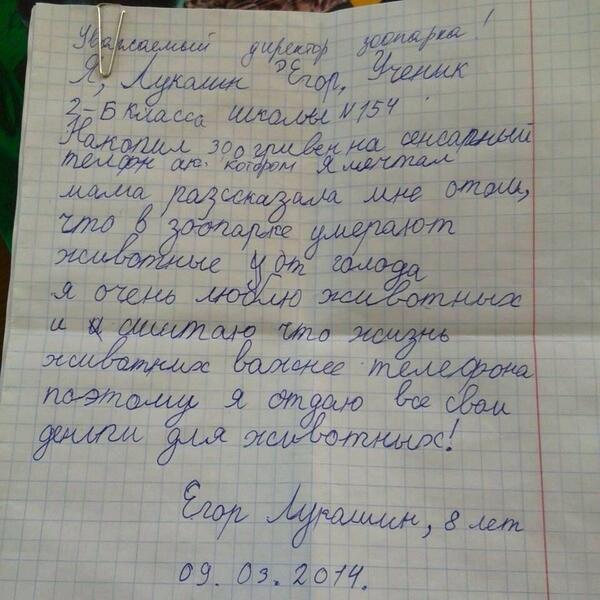 Уважаемый директор зоопарка!
Я, Лукашин Егор, Ученик
2-Б класса школы №154
Накопил 300 гривен на сенсарный
телфон о котором я мечтал
мама разсказала мне отом,
что в зоопарке умерают
животные от голода
я очень люблю животных
и считаю что жизнь
животних важнее телефона
поэтому я отдаю все свои
деньги для животных!
Егор Лукашин, 8 лет
09.03.2014.